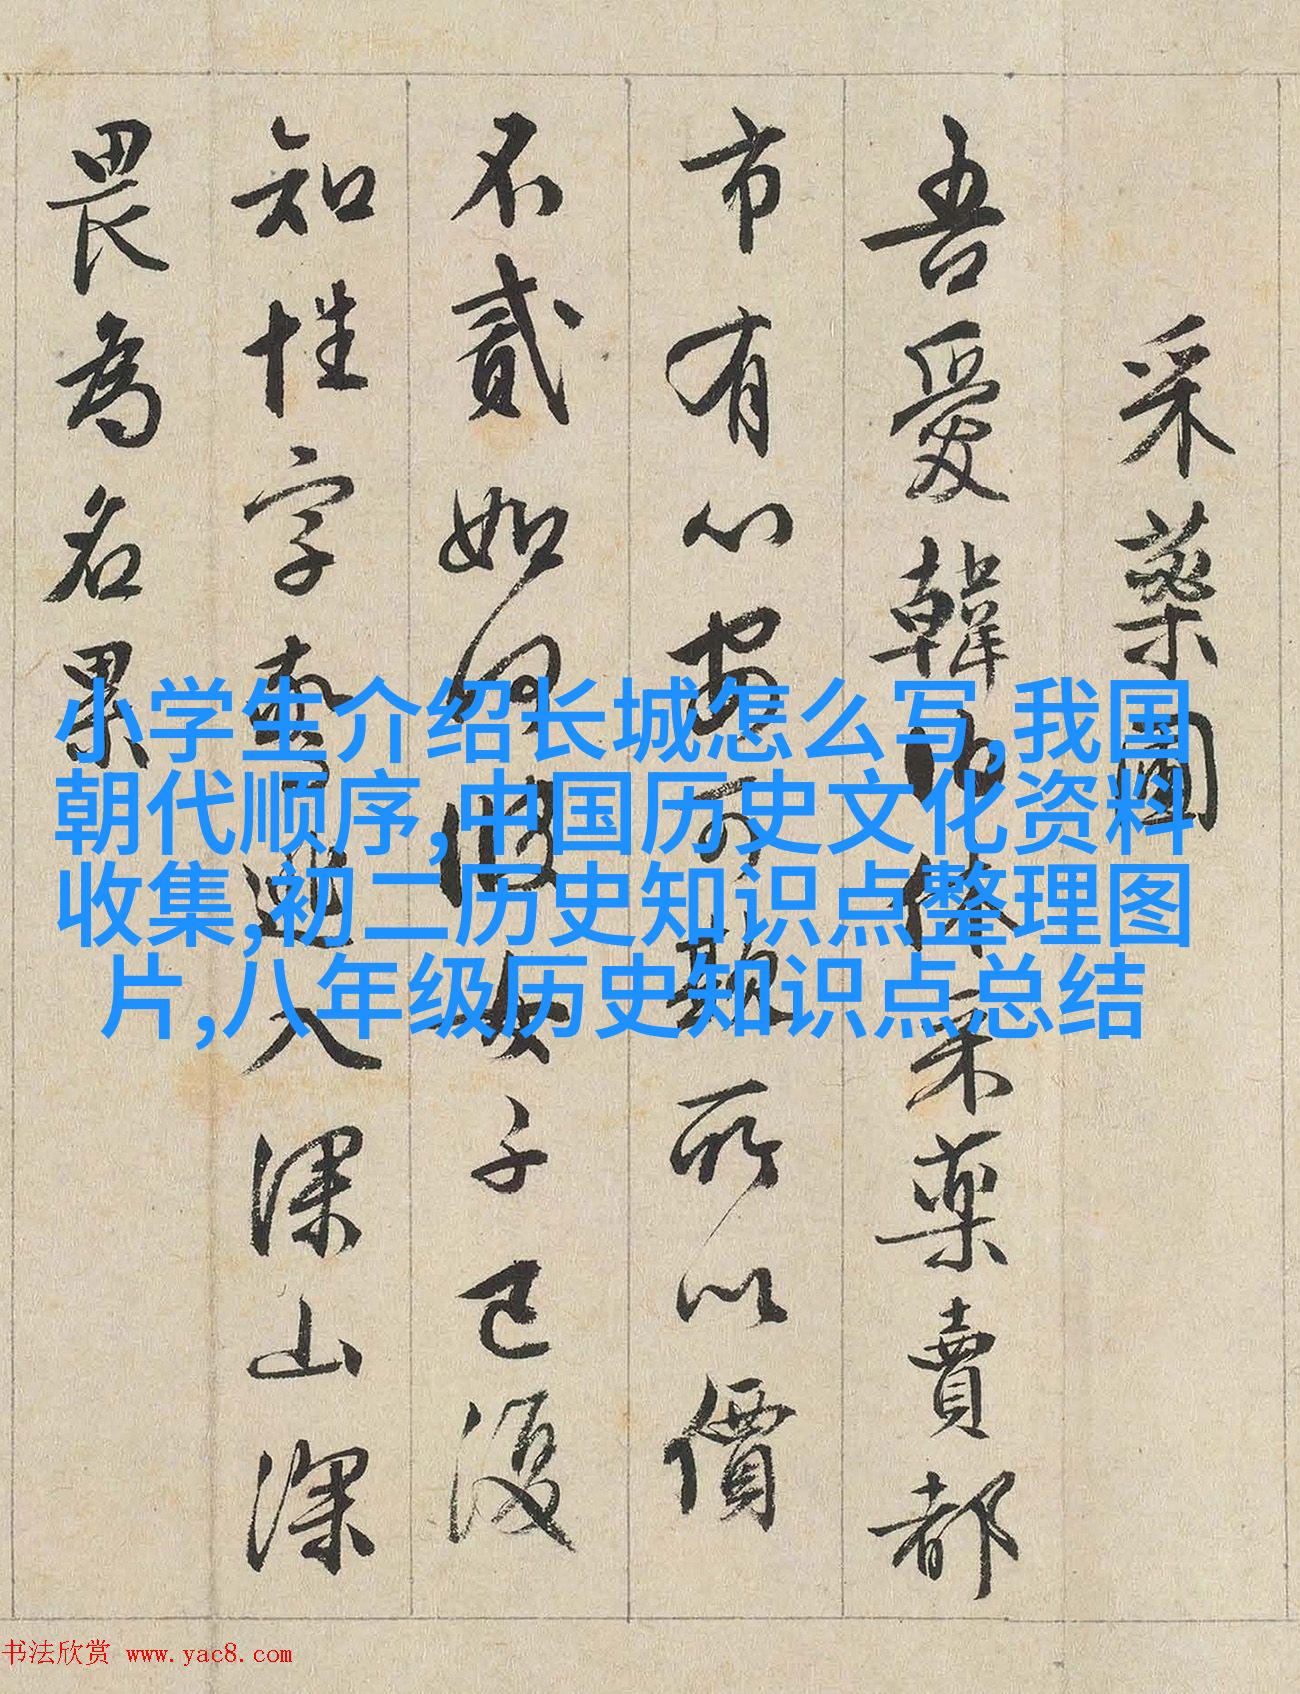 采藥圖
吾愛韓伯休采藥賣都
市有心安可欺所以價
不貳如何女子已復
知性字入深山深
畏為名累
小学生介绍长城怎么写,我国
朝代顺序,中国历史文化资料
收集,初二历史知识点整理图
片,八年级历史知识点总结
书法欣赏 www.yac8.com